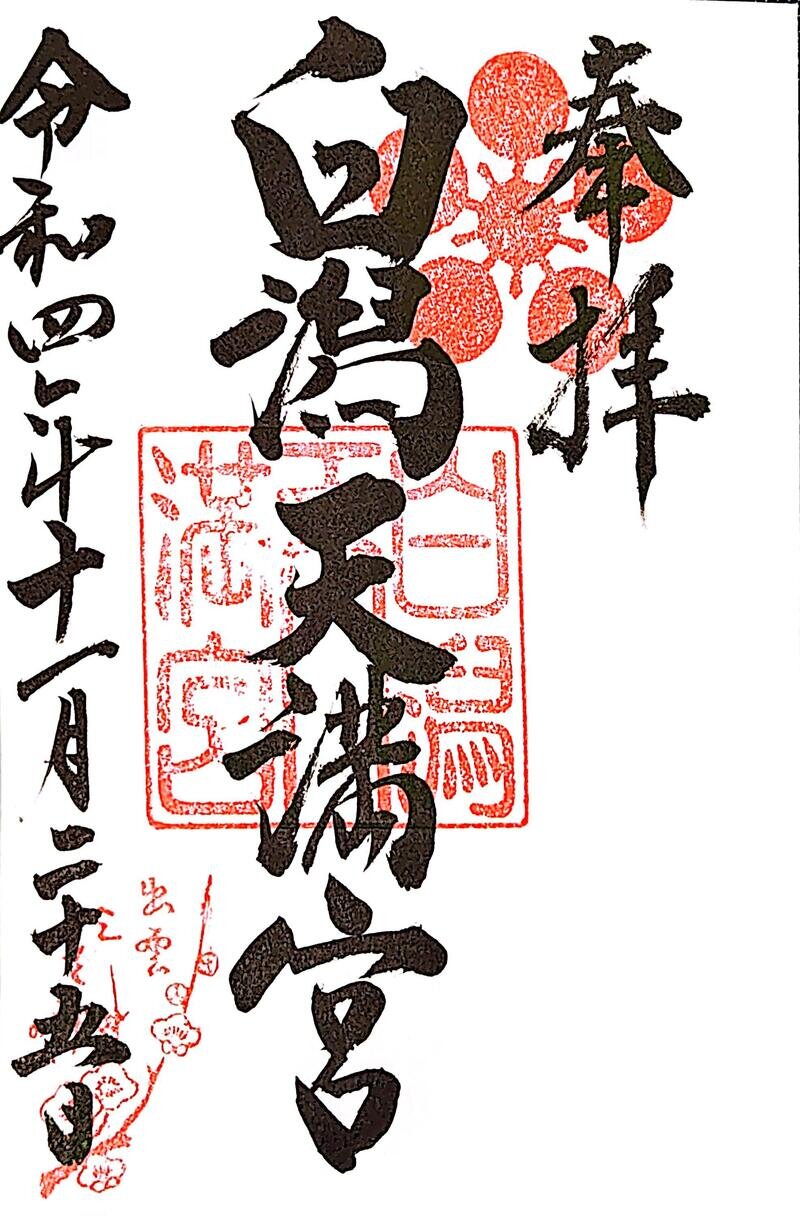 奉拝
白潟天満宮
白潟
天
満宮
令和四年十一月二十五日
出雲